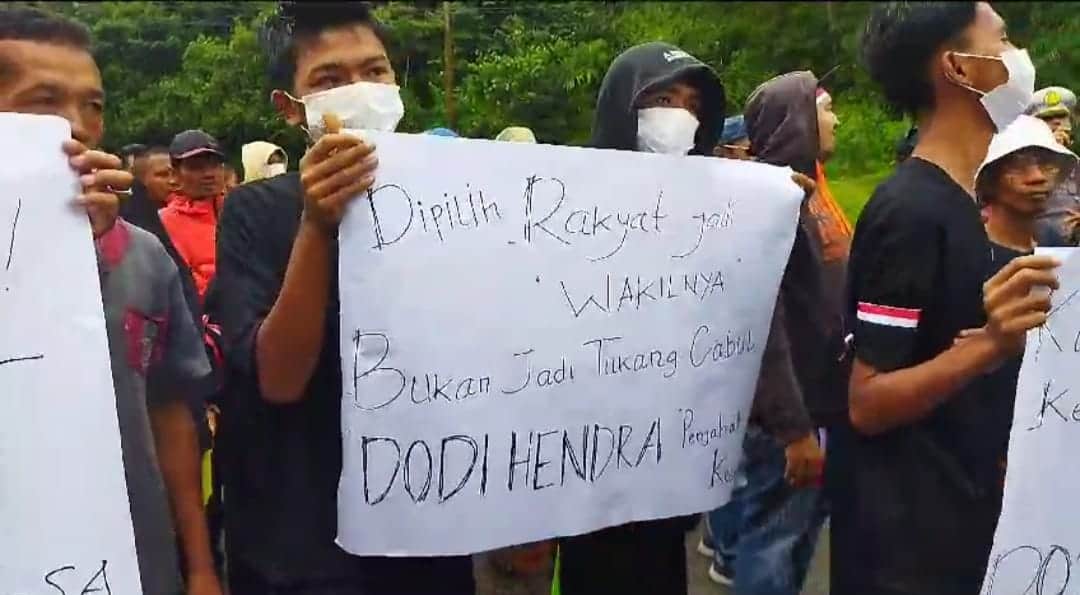 Dipilih Rakyat jadi
"WAKILNYA"
Bukan Jadi Tukang Cabul
DODI HENDRA Penjahat
!
SA
Ke
DO